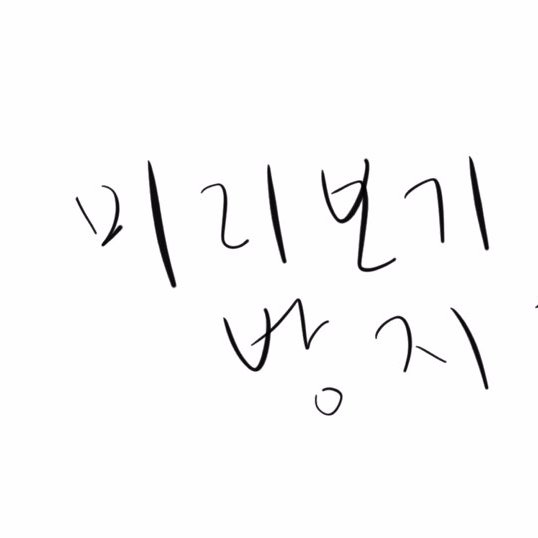 미리보기
방지